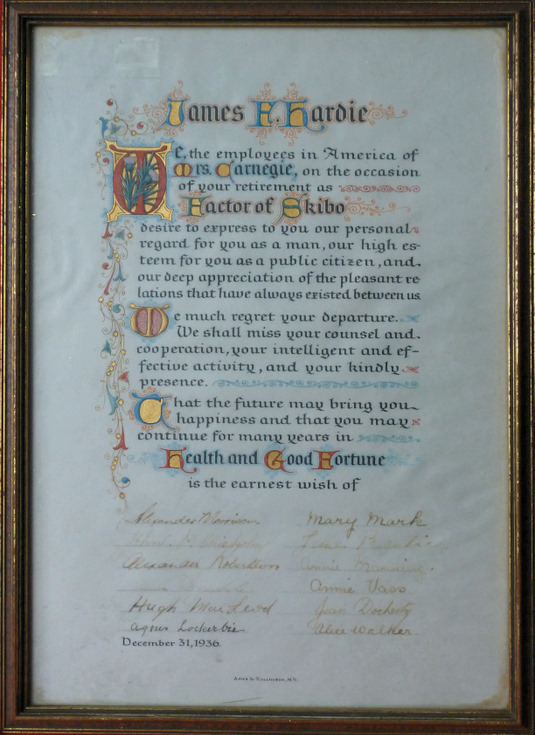 James F. Hardie
We, the employees in America of
Mrs. Carnegie, on the occasion
of your retirement as
Factor of Skibo
desire to express to you our personal
regard for you as a man, our high es-
teem for you as a public citizen, and
our deep appreciation of the pleasant re
lations that have always existed between us.
We much regret your departure.
We shall miss your counsel and
cooperation, your intelligent and ef-
fective activity, and your kindly
presence.
That the future may bring you
happiness and that you may
continue for many years in
Health and Good Fortune
is the earnest wish of
Alexander Morrison Mary Mark
Alexander Robertson Annie Manning
Annie Vass
Hugh MacLeod Jean Docherty
Agnes Lockerbie Alice Walker
December 31, 1936.